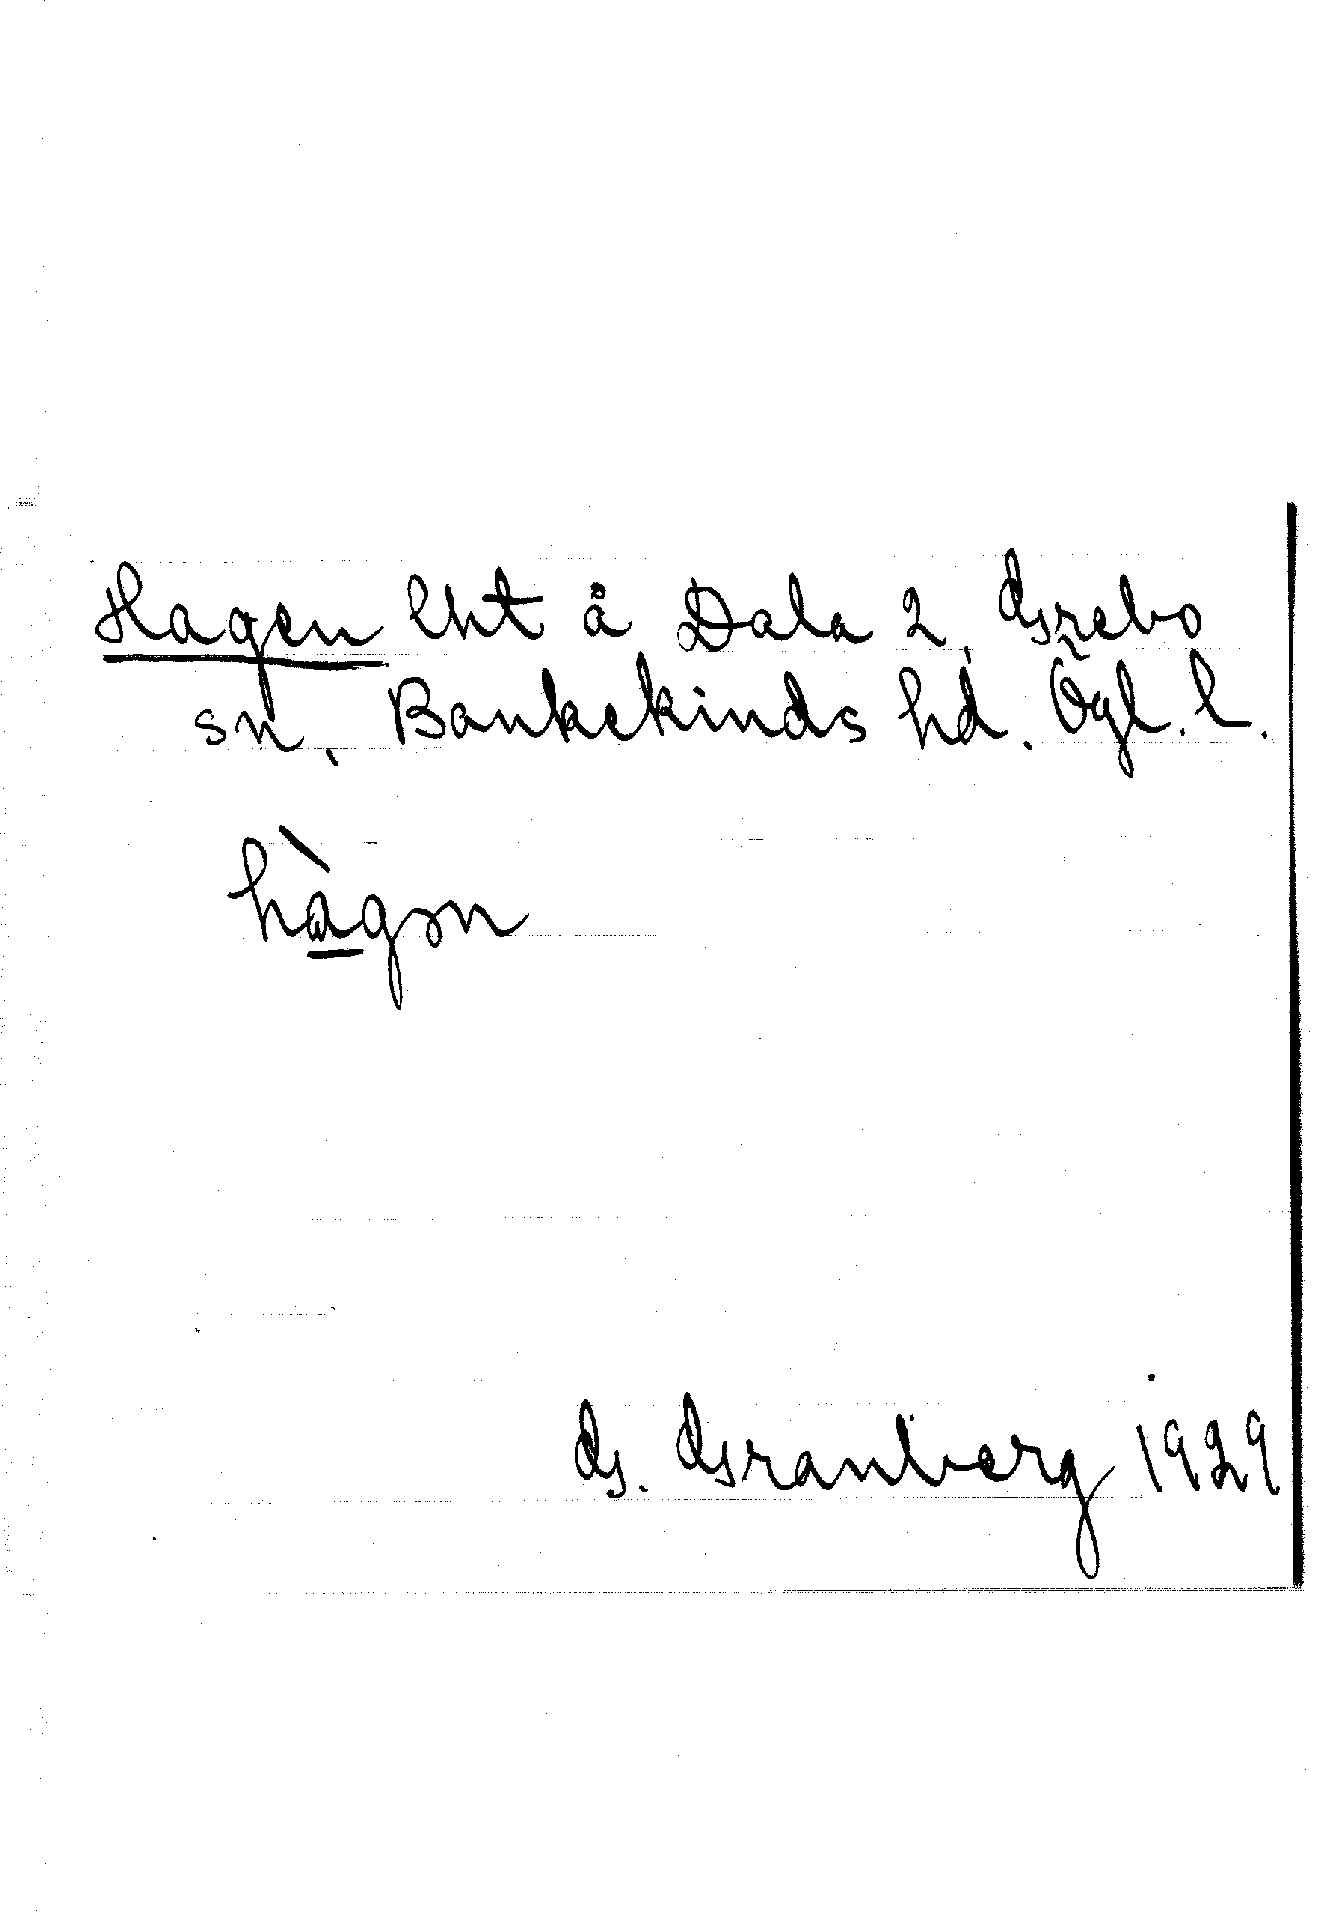 Hagen lht å Dala 2, Grebo
sn, Bankekinds hd. Ögl. l.
hàgɔn
G. Granberg 1929